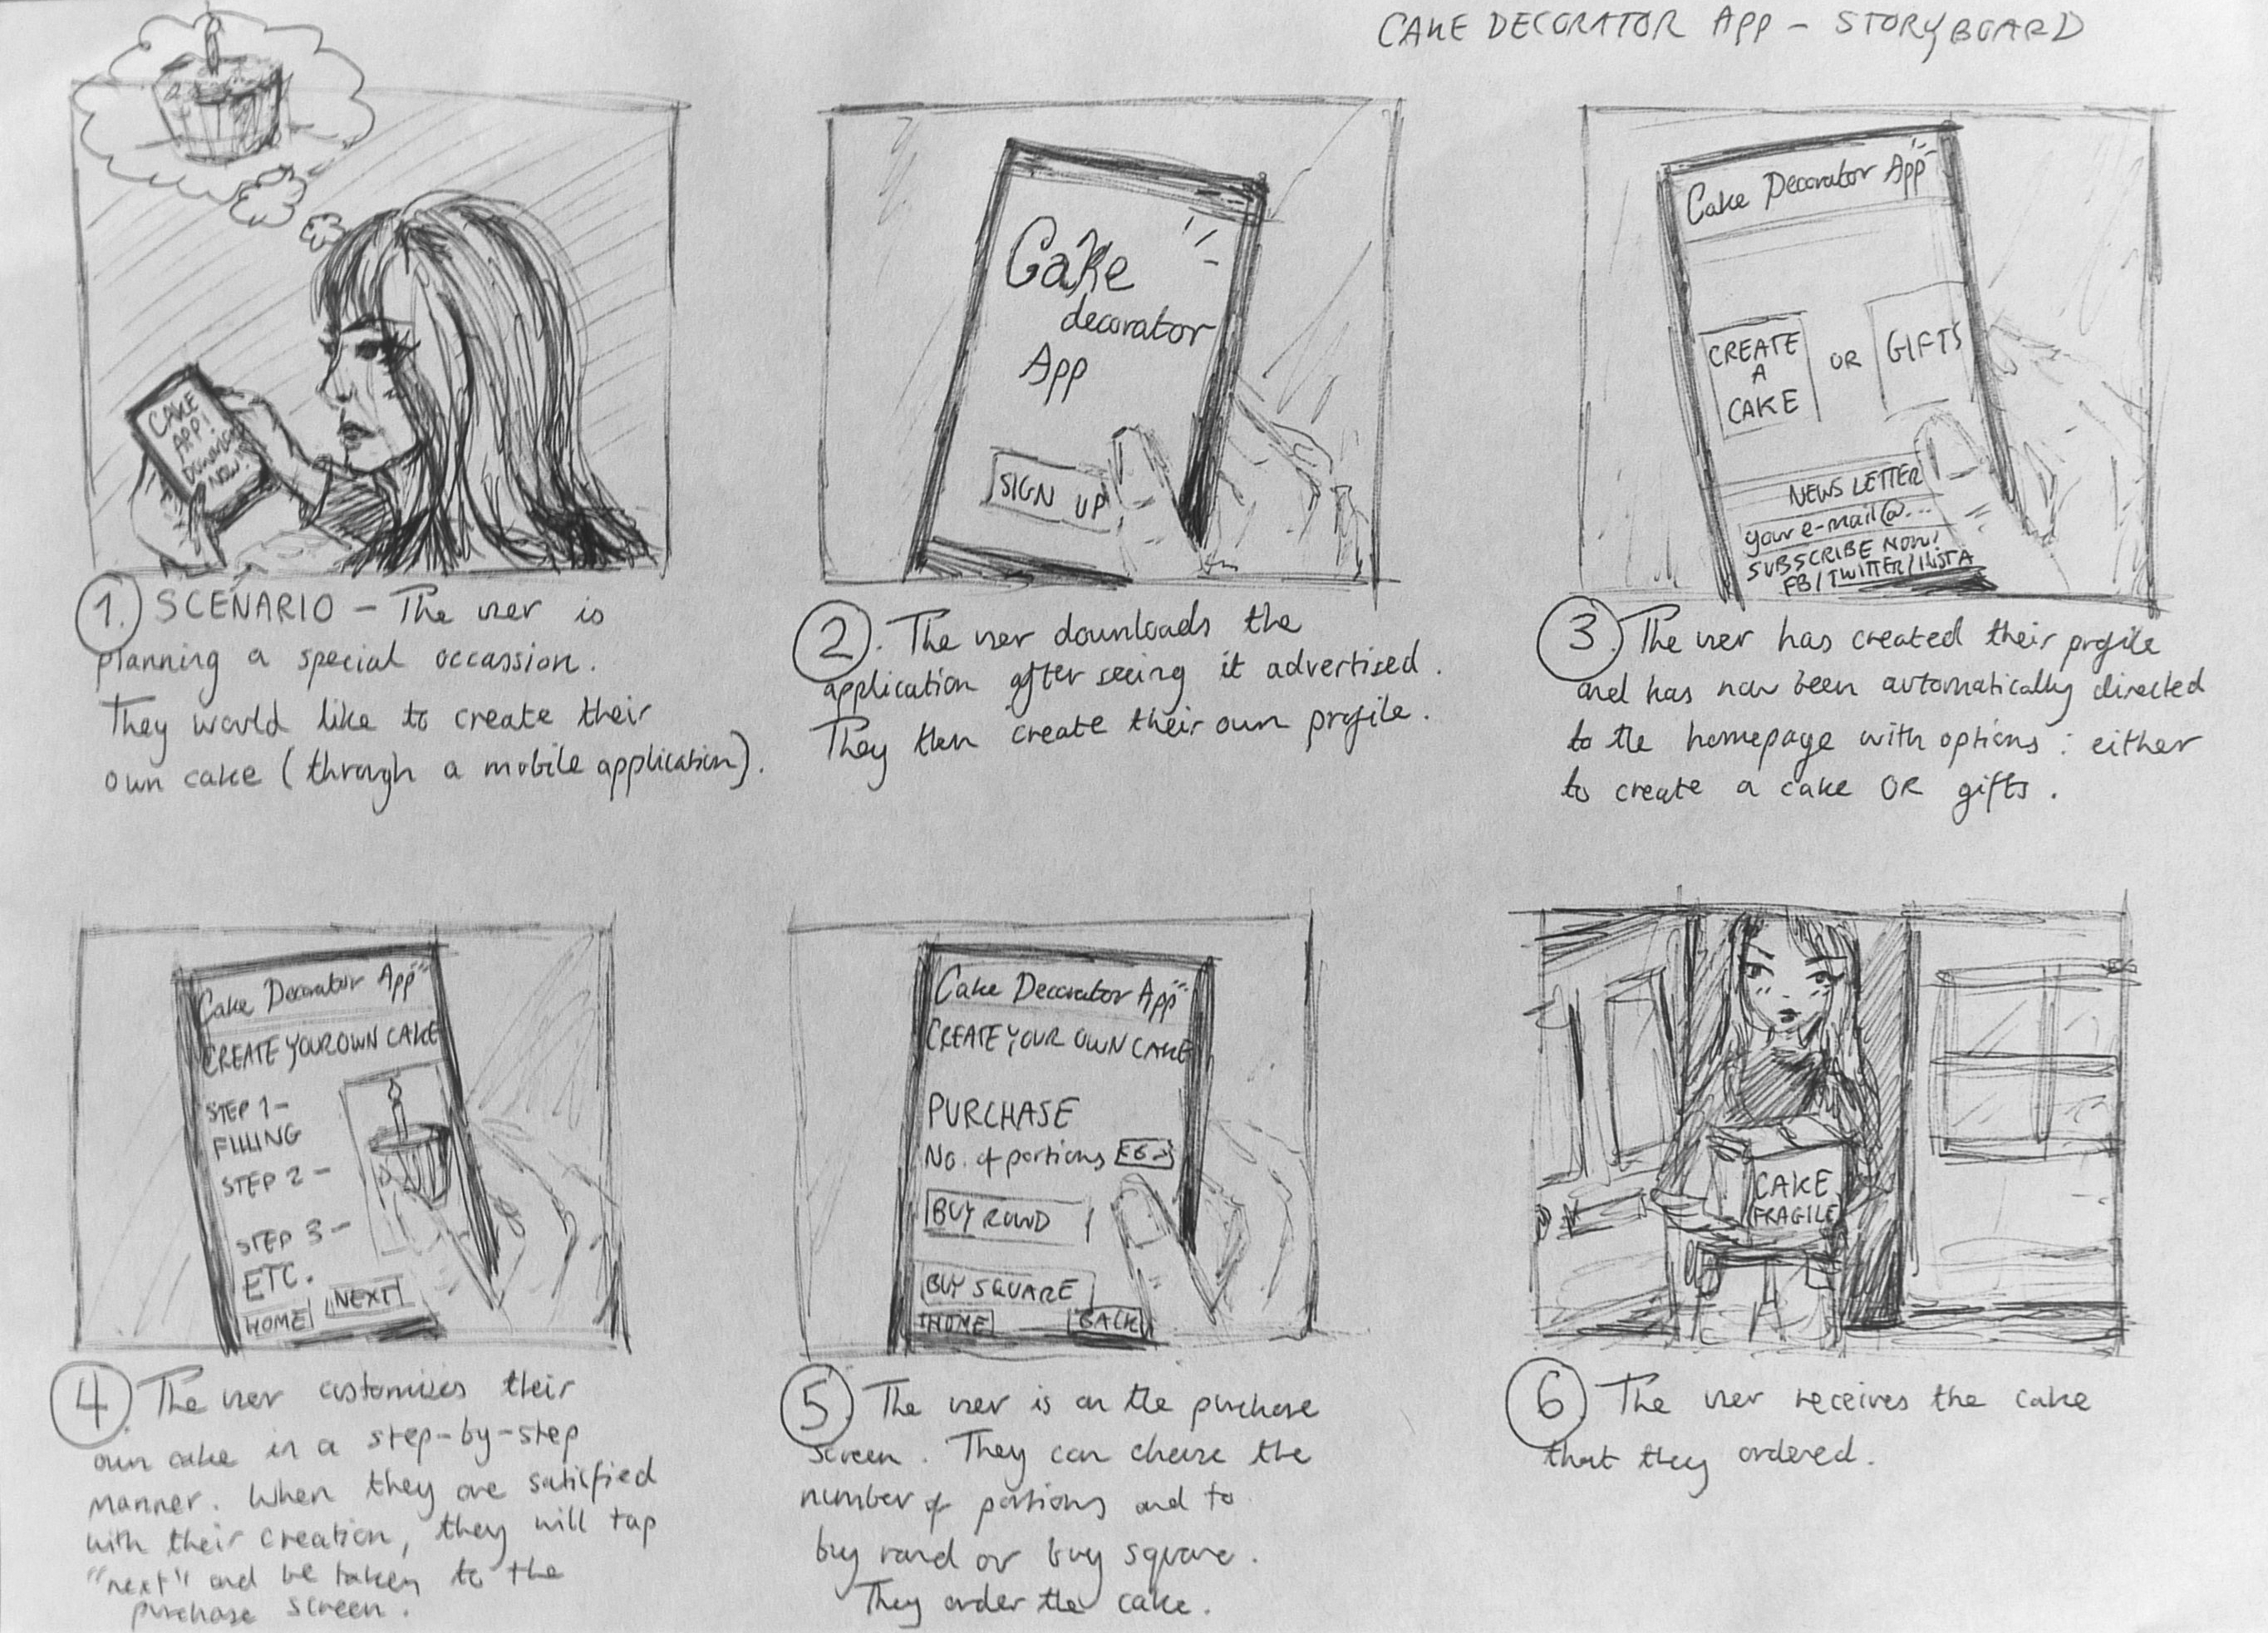 CAKE DECORATOR APP - STORYBOARD
CAKE
APP!
DOWNLOAD
NOW!
1. SCENARIO - The user is
planning a special occassion.
They would like to create their
own cake (through a mobile application).
Cake
decorator
App
SIGN UP
2. The user downloads the
application after seeing it advertised.
They then create their own profile.
Cake Decorator App
CREATE
A
CAKE
OR
GIFTS
NEWSLETTER
your e-mail@...
SUBSCRIBE NOW!
FB/TWITTER/INSTA
3. The user has created their profile
and has now been automatically directed
to the homepage with options: either
to create a cake OR gifts.
Cake Decorator App
CREATE YOUR OWN CAKE
STEP 1-
FILLING
STEP 2-
STEP 3-
ETC.
HOME NEXT
4. The user customises their
own cake in a step-by-step
manner. When they are satisfied
with their creation, they will tap
"next" and be taken to the
purchase screen.
Cake Decorator App
CREATE YOUR OWN CAKE
PURCHASE
No. of portions
BUY ROUND
BUY SQUARE
HOME BACK
5. The user is on the purchase
screen. They can choose the
number of portions and to
buy round or buy square.
They order the cake.
CAKE
FRAGILE
6. The user receives the cake
that they ordered.